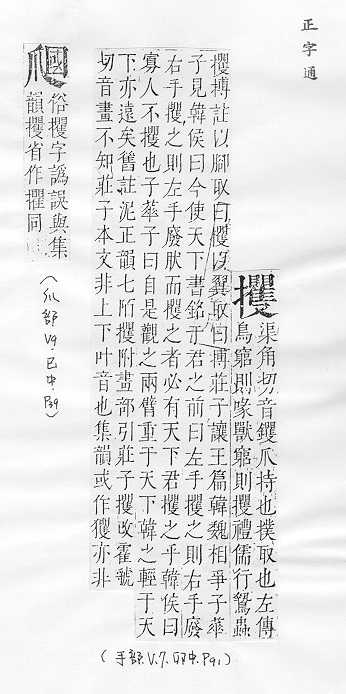 正字通
攫渠角切音钁爪持也撲取也左傳
鳥窮則喙獸窮則攫禮儒行鷙蟲
攫搏註以腳取曰攫以翼取曰搏莊子讓王篇韓魏相爭子華
子見韓侯曰今使天下書銘于君之前曰左手攫之則右手廢
右手攫之則左手廢肰而攫之者必有天下君攫之乎韓侯曰
寡人不攫也子華子曰自是觀之兩臂重于天下韓之輕于天
下亦遠矣舊註泥正韻七陌攫附畫部引莊子攫攺霍虢
切音畫不知莊子本文非上下叶音也集韻或作玃亦非
(手部 V.7. 卯中. P91)
俗攫字譌誤與集
韻攫省作擢同
(爪部 V9. 巳中. P39)